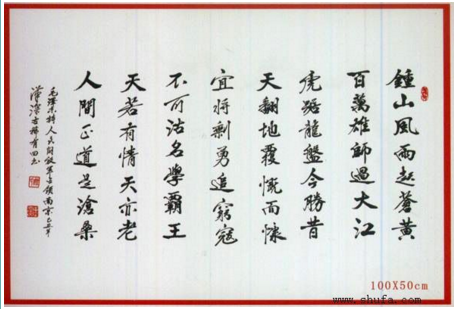 鍾山風雨起蒼黃
百萬雄師過大江
虎踞龍盤今勝昔
天翻地覆慨而慷
宜將剩勇追窮寇
不可沽名學霸王
天若有情天亦老
人間正道是滄桑
毛澤東詩人民解放軍占領南京
100X50cm
www.shufa.com